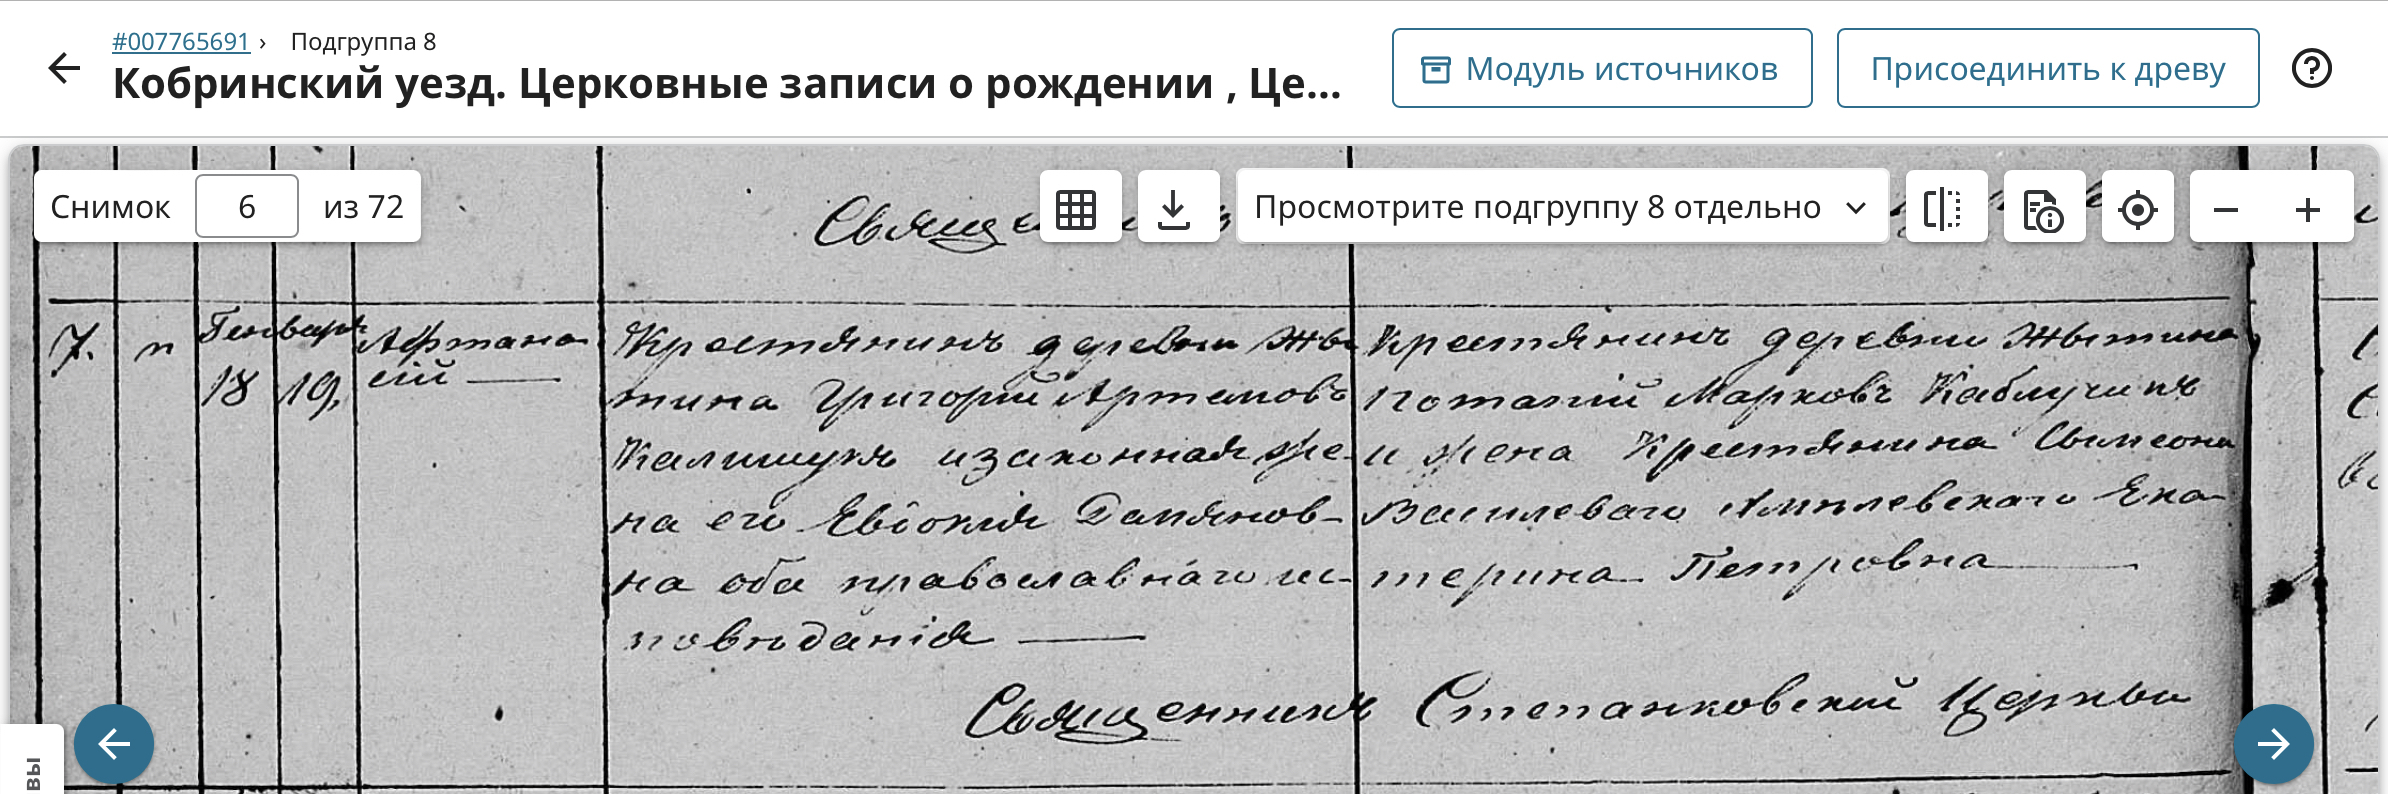 #007765691 › Подгруппа 8
Кобринский уезд. Церковные записи о рождении , Це...
Модуль источников
Присоединить к древу
Снимок 6 из 72
Просмотрите подгруппу 8 отдельно
Свяще
7. п Генваря Афтана
18 19, сій —
Крестянинъ деревни Жы
тина Григорій Артемовъ
Калишукъ и законная же-
на его Евдокія Дамянов-
на оба православнаго ис-
повѣданія —
Крестянинъ деревни Жытина
Потапій Марковъ Каблучикъ
и жена Крестянина Сымеона
Василеваго Ека-
терина Петровна —
Священникъ Степанковскій Церкви
вы